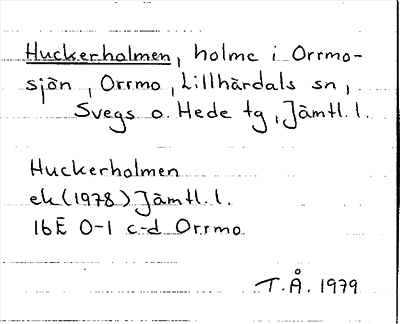 Huckerholmen, holme i Orrmo-
sjön, Orrmo, Lillhärdals sn,
Svegs o. Hede tg, Jämtl. l.
Huckerholmen
ek (1978) Jämtl. l.
16E 0-1 c-d Orrmo
T.Å. 1979